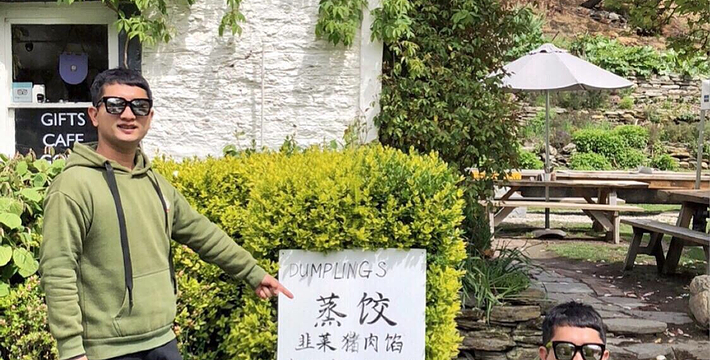 GIFTS
CAFE
DUMPLINGS
蒸饺
韭菜猪肉馅